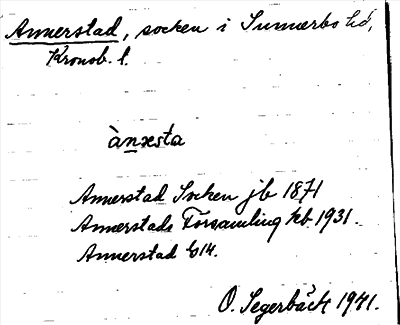 Annerstad, socken i Sunnerbo hd,
Kronob. l.
ànxsta
Annerstad Socken jb 1871
Annerstads Församling kb. 1931.
Annerstad 614.
O. Segerbäck 1941.